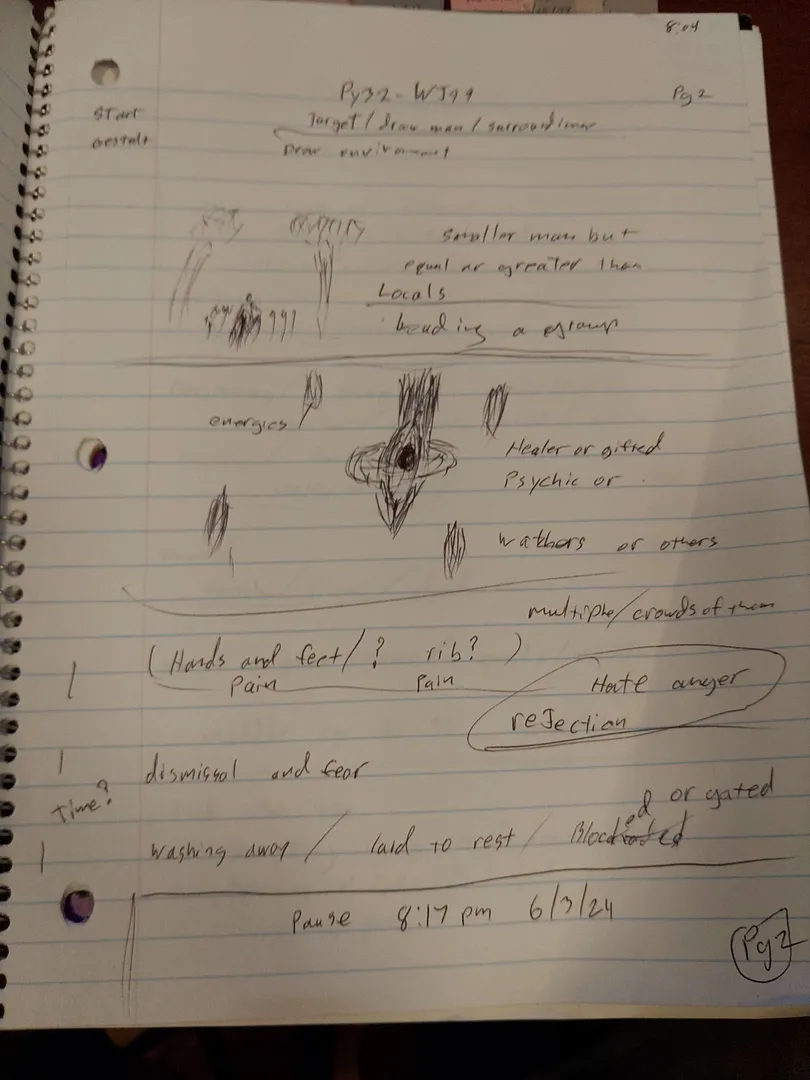 8:04
Py32-WJ99
Pg 2
Start
Gestalt
Target/draw man/surroundings
Draw environment
smaller man but
equal or greater than
Locals
heading a group
energies
Healer or gifted
Psychic or
watchers or others
multiple/crowds of them
(Hands and feet/? rib?)
Pain Pain
Hate anger
reJection
dismissal and fear
Time?
washing away / laid to rest / Blocked or gated
Pause 8:17 pm 6/3/24
Pg 2